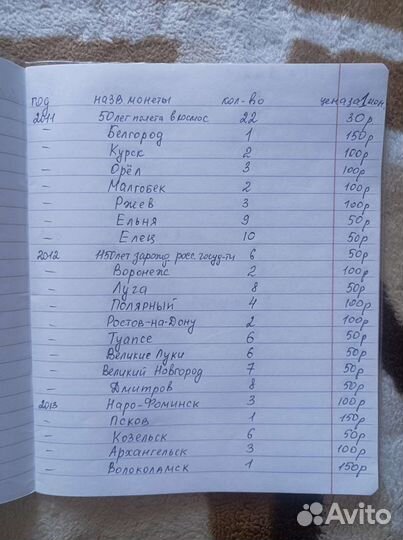 год назв монеты кол-во цена за 1 мон
2011 50 лет полета в космос 22 30р
— Белгород 1 150р
— Курск 2 100р
— Орёл 3 100р
— Малгобек 2 100р
— Ржев 3 100р
— Ельня 9 50р
— Елец 10 50р
2012 1150 лет зарожд росс. госуд-ти 6 50р
— Воронеж 2 100р
— Луга 8 50р
— Полярный 4 100р
— Ростов-на-Дону 2 100р
— Туапсе 6 50р
— Великие Луки 6 50р
— Великий Новгород 7 50р
— Дмитров 8 50р
2013 Наро-Фоминск 3 100р
— Псков 1 150р
— Козельск 6 50р
— Архангельск 3 100р
— Волоколамск 1 150р
Avito